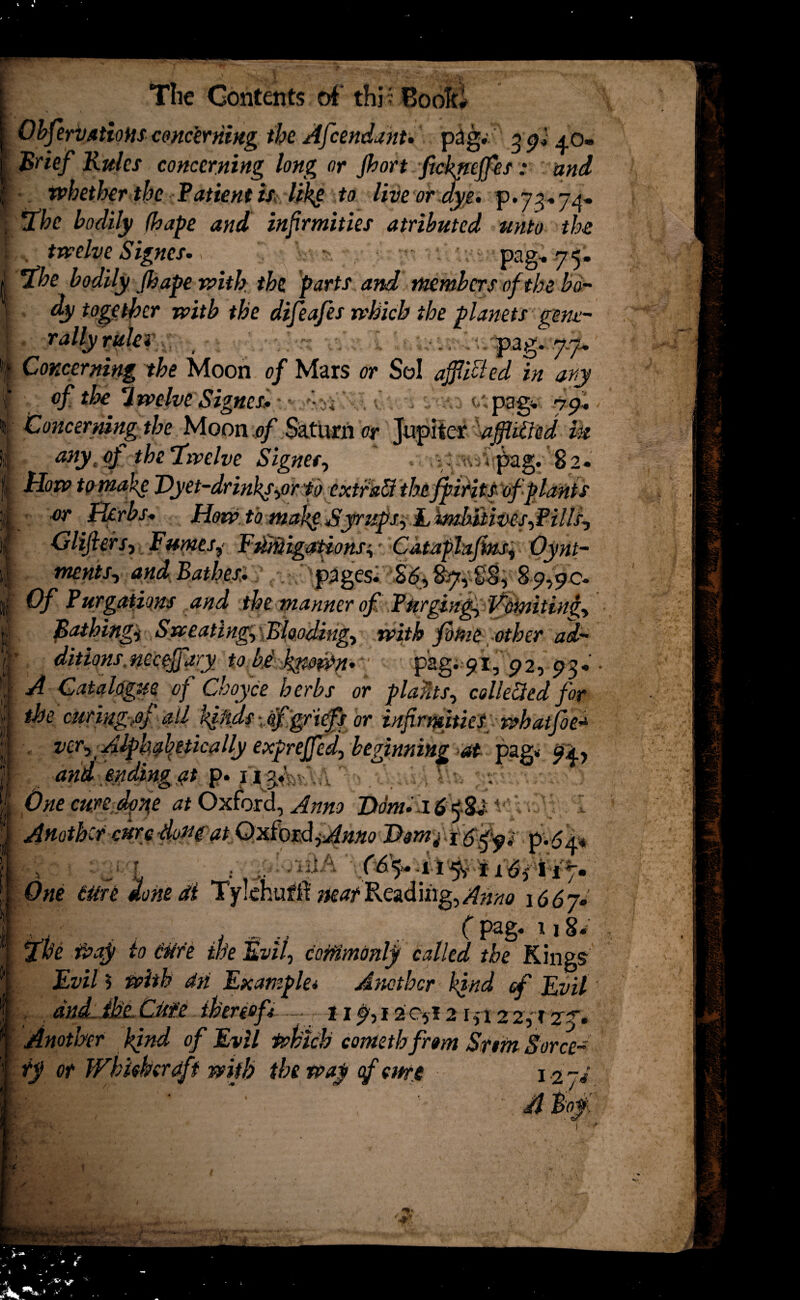 The Contents of this Book.
Observations concerning the Ascendant. pag. 39. 40.
Brief Rules concerning long or short sicknesses: and
whether the Patient is like to live or dye. p.73.74.
The bodily shape and infirmities atributed unto the
twelve Signes. pag. 75.
The bodily shape with the parts and members of the bo-
dy together with the diseases which the planets gene-
rally rule: pag. 77.
Concerning the Moon of Mars or Sol afflicted in any
of the Twelve Signes. pag. 79.
Concerning the Moon of Saturn or Jupiter afflicted in
any of the Twelve Signes, pag. 82.
How to make Dyet-drinks, or to extract the spirits of plants
or Herbs. How to make Syrups, Lambitives, Pills,
Glisters, Fumes, Fumigations, Cataplasms, Oynt-
ments, and Bathes. pages. 86, 87, 88, 89, 90.
Of Purgations and the manner of Purging, Vomiting,
Bathing, Sweating, Blooding, with some other ad-
ditions necessary to be known. pag. 91, 92, 93.
A Catalogue of Choyce herbs or plants, collected for
the curing of all kinds of griefs or infirmities whatsoe-
ver, Alphabetically expressed, beginning at pag. 94,
and ending at p. 113.
One cure done at Oxford, Anno Dom. 1658.
Another cure done at Oxford, Anno Dom, 1659. p.64.
(65. 115, 116, 117.
One cure done at Tylehurst near Reading, Anno 1667.
(pag. 118.
The way to cure the Evil, commonly called the Kings
Evil; with an Example. Another kind of Evil
and the Cure thereof. 119,120,121,122,123.
Another kind of Evil which cometh from Srom Sorce-
ry or Whichcraft with the way of cure 127.
A Boy